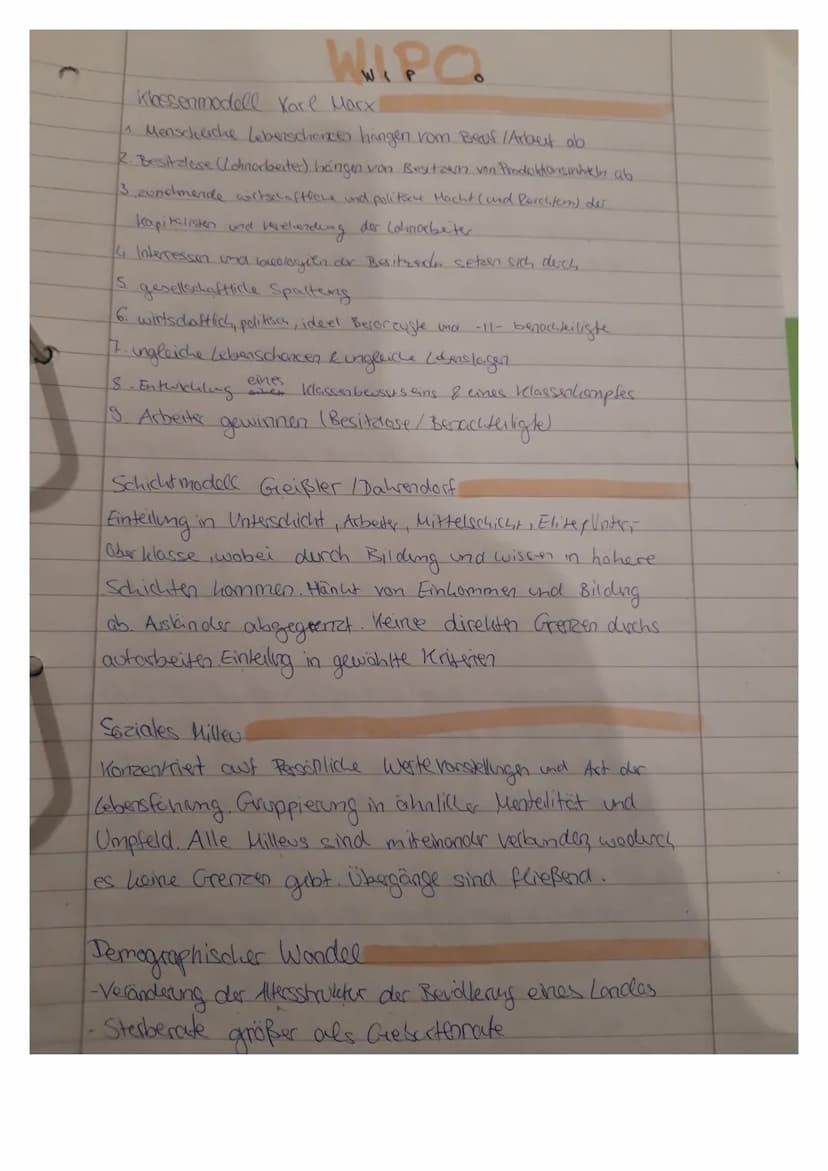 WIPO.
W I P
Klassenmodell Karl Marx
1. Menschliche Lebenschancen hängen vom Beruf/Arbeit ab
2. Besitzlose (Lohnarbeiter) hängen von Besitzern von Produktionsmitteln ab
3. zunehmende wirtschaftliche und politische Macht (und Reichtum) der
Kapitalisten und Verelendung der Lohnarbeiter
4. Interessen und Ideologien der Besitzenden setzen sich durch
5. gesellschaftliche Spaltung
6. wirtschaftlich, politisch, ideel Bevorzugte und -11- benachteiligte
7. ungleiche Lebenschancen & ungleiche Lebenslagen
8. Entwicklung eines Klassenbewusseins & eines Klassenkampfes
9. Arbeiter gewinnen (Besitzlose/Benachteiligte)
Schichtmodell Geißler/Dahrendorf
Einteilung in Unterschicht, Arbeiter, Mittelschicht, Elite, Unter,-
Oberklasse, wobei durch Bildung und wissen in höhere
Schichten kommen. Hänkt von Einkommen und Bildung
ab. Ausländer abgegrenzt. Keine direkten Grenzen durchs
Einteilung in gewählte Kriterien
Soziales Milleu
Konzentriert auf Persönliche Wertevorstellungen und Art der
Lebensführung. Gruppierung in ähnlicher Mentelität und
Umpfeld. Alle Milleus sind miteinander verbunden, wodurch
es keine Grenzen gibt. Übergänge sind fließend.
Demographischer Wandel
-Veränderung der Altersstruktur der Bevölkerung eines Landes
- Sterberate größer als Geburtenrate